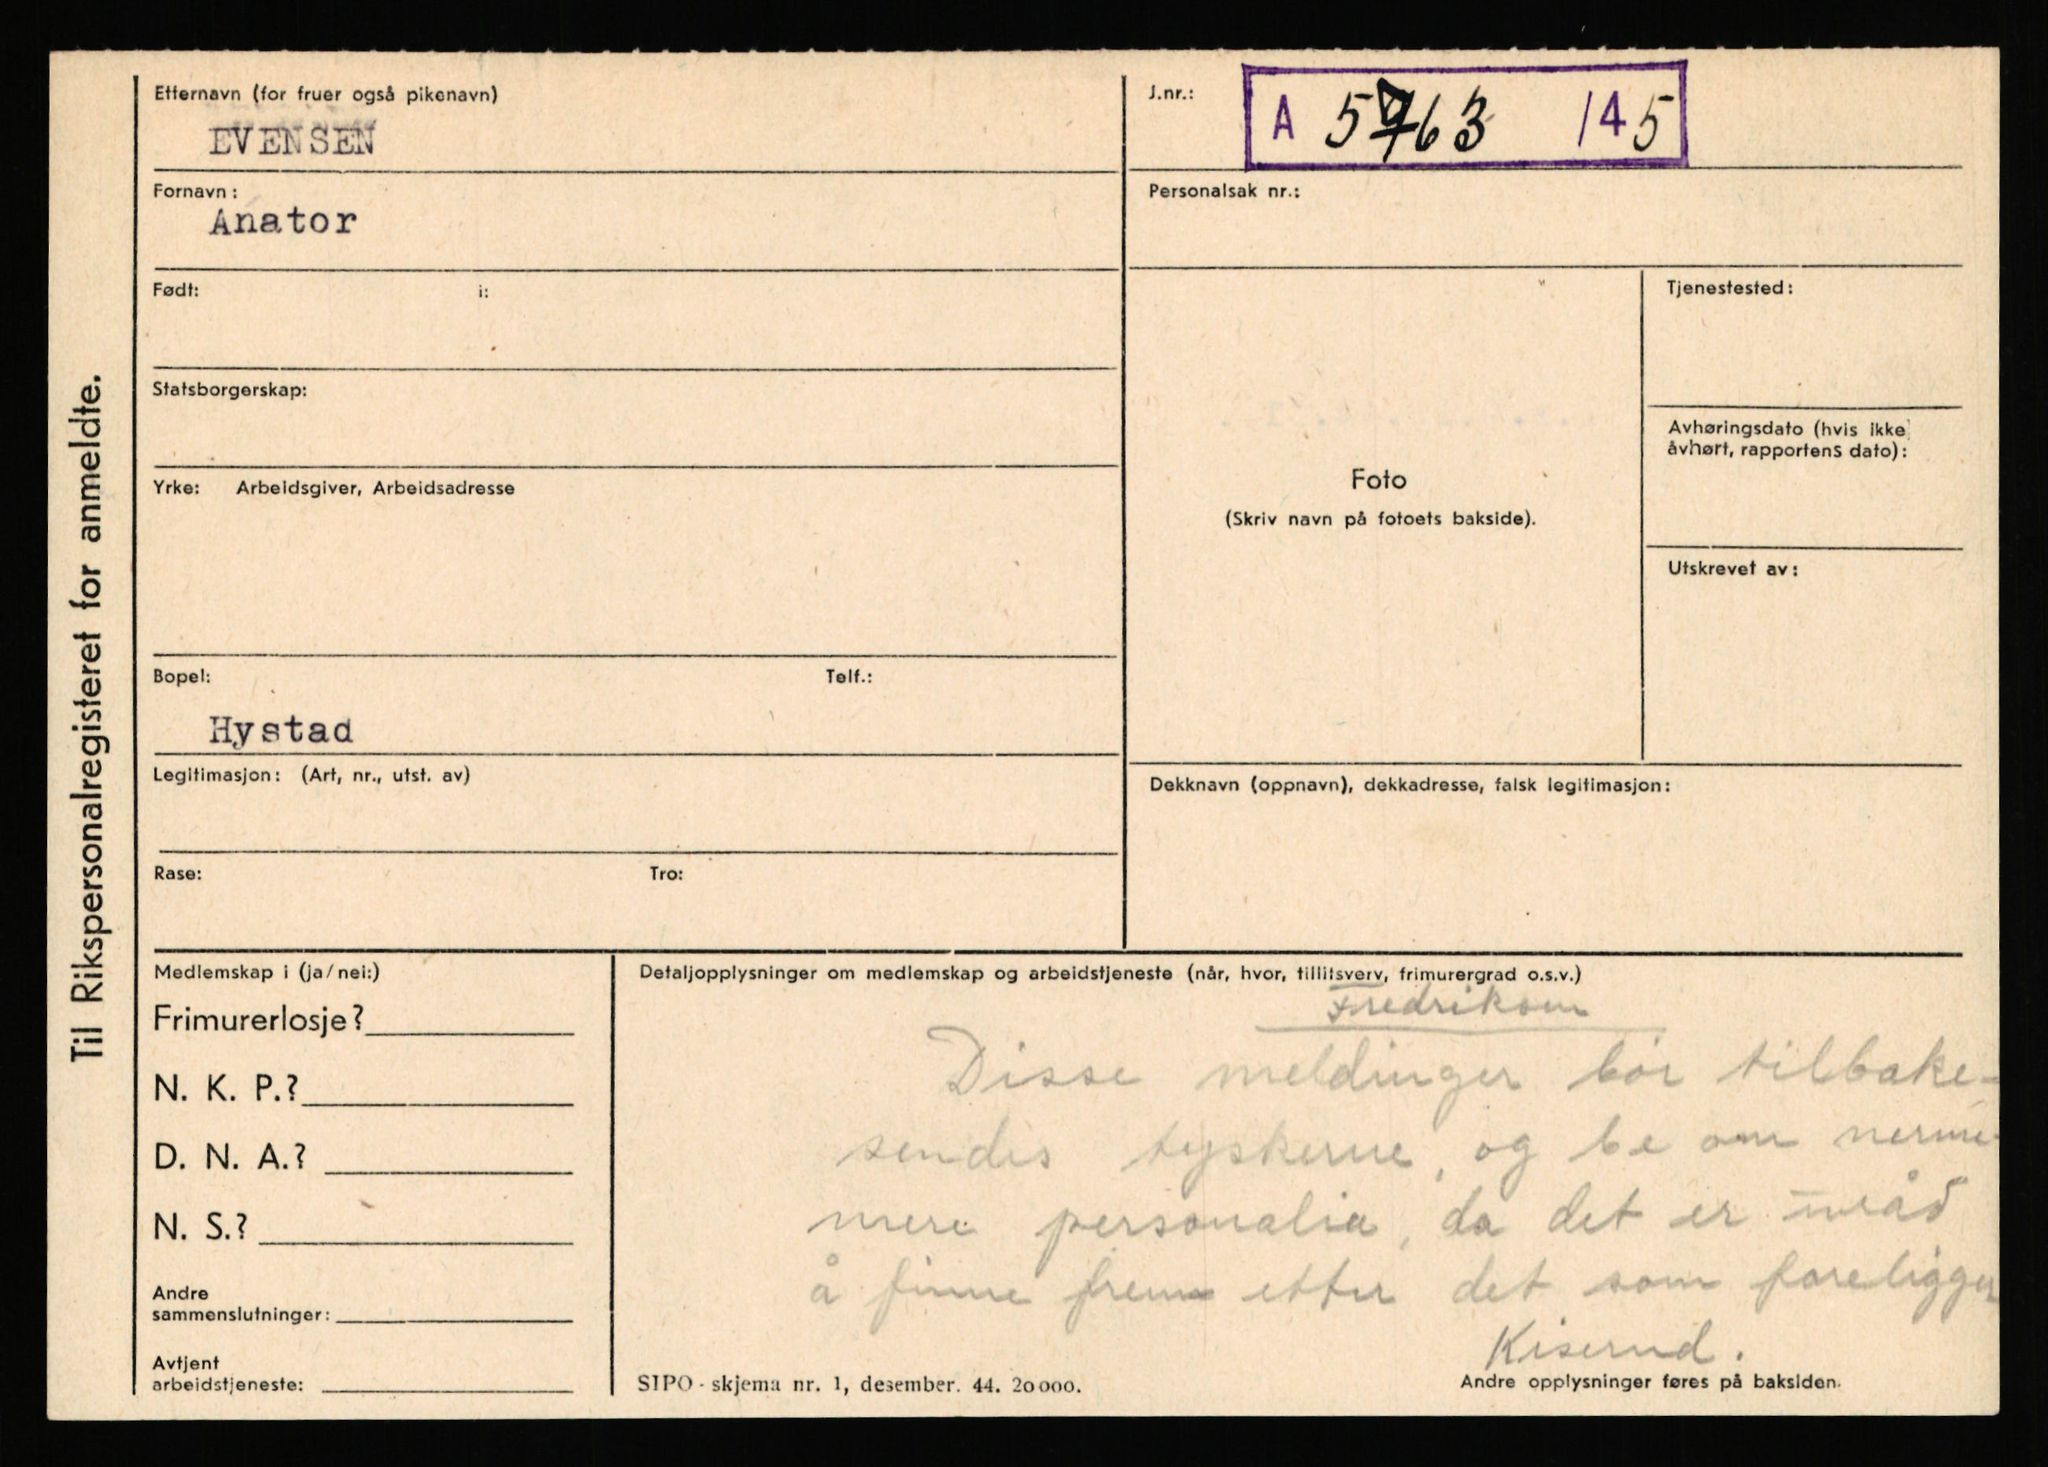 Til Rikspersonalregisteret for anmeldte.
Etternavn (for fruer også pikenavn)
EVENSEN
Fornavn:
Anator
Født: i:
Statsborgerskap:
Yrke: Arbeidsgiver, Arbeidsadresse
Bopel: Telf.:
Hystad
Legitimasjon: (Art, nr., utst. av)
Rase: Tro:
J.nr.:
A 5763 /45
Personalsak nr.:
Foto
(Skriv navn på fotoets bakside).
Tjenestested:
Avhøringsdato (hvis ikke
avhørt, rapportens dato):
Utskrevet av:
Dekknavn (oppnavn), dekkadresse, falsk legitimasjon:
Medlemskap i (ja/nei:)
Frimurerlosje?
N. K. P.?
D. N. A.?
N. S.?
Andre
sammenslutninger:
Avtjent
arbeidstjeneste:
Detaljopplysninger om medlemskap og arbeidstjeneste (når, hvor, tillitsverv, frimurergrad o.s.v.)
Disse meldinger bør tilbake-
sendes tyskerne, og be om nerme-
mere personalia, da det er uråd
å finne frem etter det som foreligger
Kiserud.
SIPO - skjema nr. 1, desember. 44. 20000.
Andre opplysninger føres på baksiden.